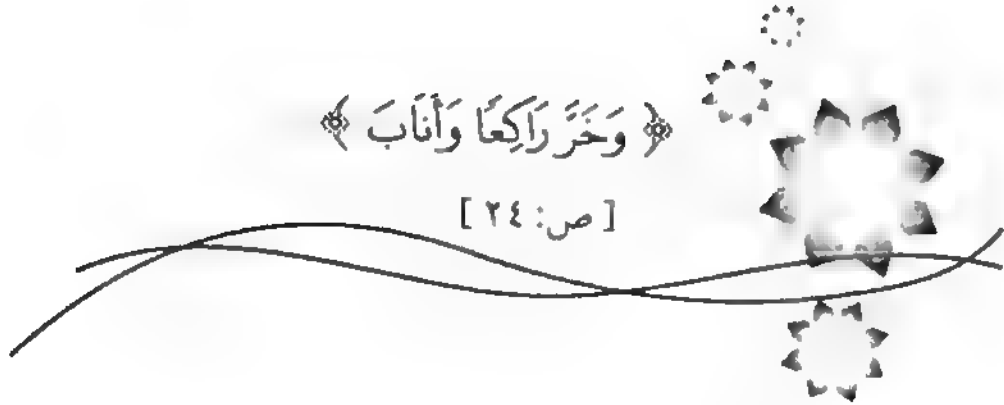 ﴿ وَخَرَّ رَاكِعًا وَأَنَابَ ﴾
[ ص: ٢٤ ]